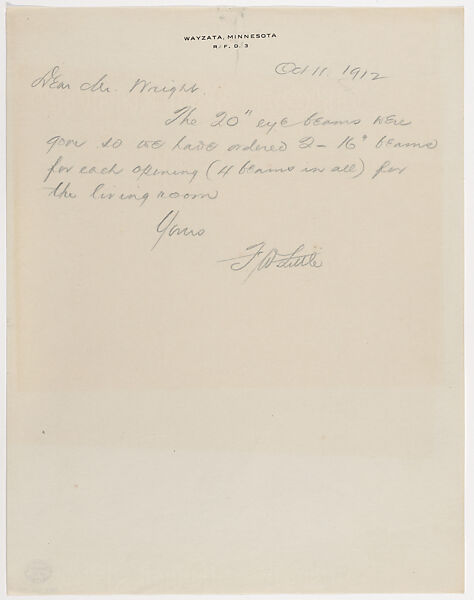 WAYZATA, MINNESOTA
R. F. D. 3
Oct 11. 1912
Dear Mr. Wright.
The 20" eye beams were
gone so we have ordered 2 - 16" beams
for each opening (4 beams in all) for
the living room
Yours
F W Little